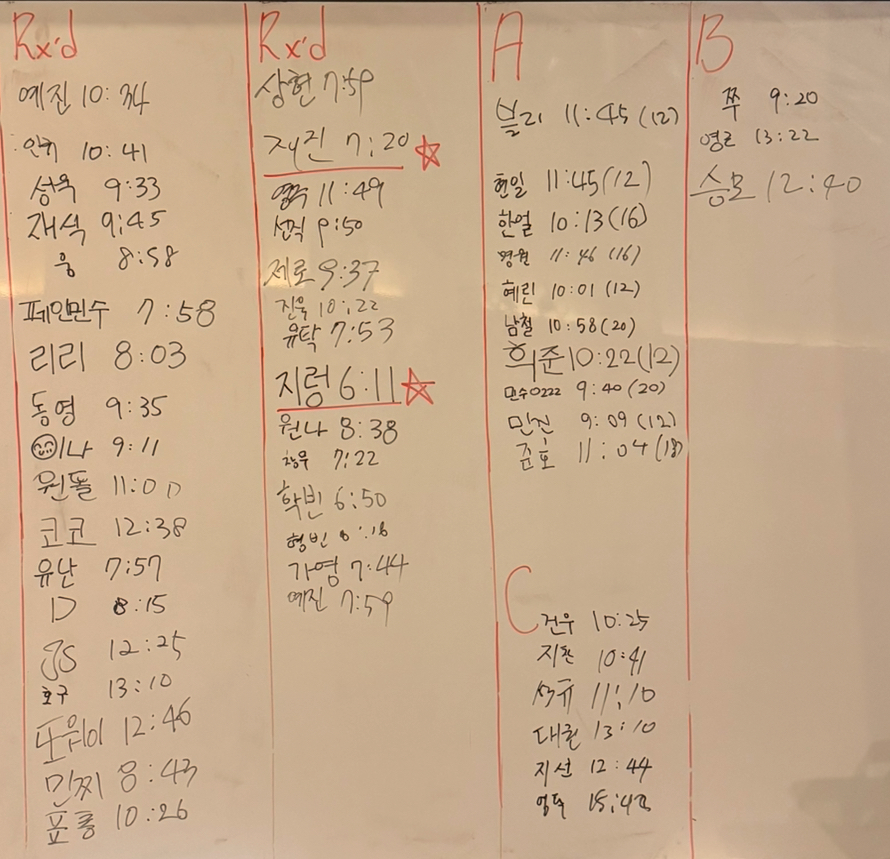 Rx'd
예진 10:34
인귀 10:41
성욱 9:33
재석 9:45
웅 8:58
페인민수 7:58
리리 8:03
동영 9:35
이나 9:11
원돌 11:00
코코 12:38
유난 7:57
D 8:15
JS 12:25
호구 13:10
또위이 12:46
민찌 8:43
표룡 10:26
Rx'd
상현 7:59
재진 7:20
영수 11:49
선직 9:50
제로 9:37
진욱 10:22
유탁 7:53
지렁 6:11
원나 8:38
창우 7:22
학빈 6:50
형빈 8:18
가영 7:44
예진 7:59
A
블리 11:45 (12)
현일 11:45 (12)
한얼 10:13 (16)
명원 11:46 (16)
혜린 10:01 (12)
남철 10:58 (20)
희준 10:22 (12)
민수0222 9:40 (20)
민건 9:09 (12)
준호 11:04 (18)
C
건우 10:25
지환 10:41
석규 11:10
대현 13:10
지선 12:44
15:42
B
쭈 9:20
영로 13:22
승모 12:40